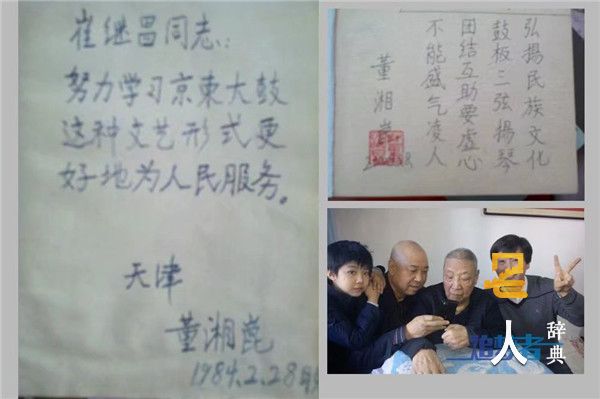 崔继昌同志:
努力学习京東大鼓
这种文艺形式更
好地为人民服务。
天津
董湘崑
1984.2.28
弘揚民族文化
鼓板二弦揚琴
团结互助要虚心
不能盛气凌人
董湘
人
辞典